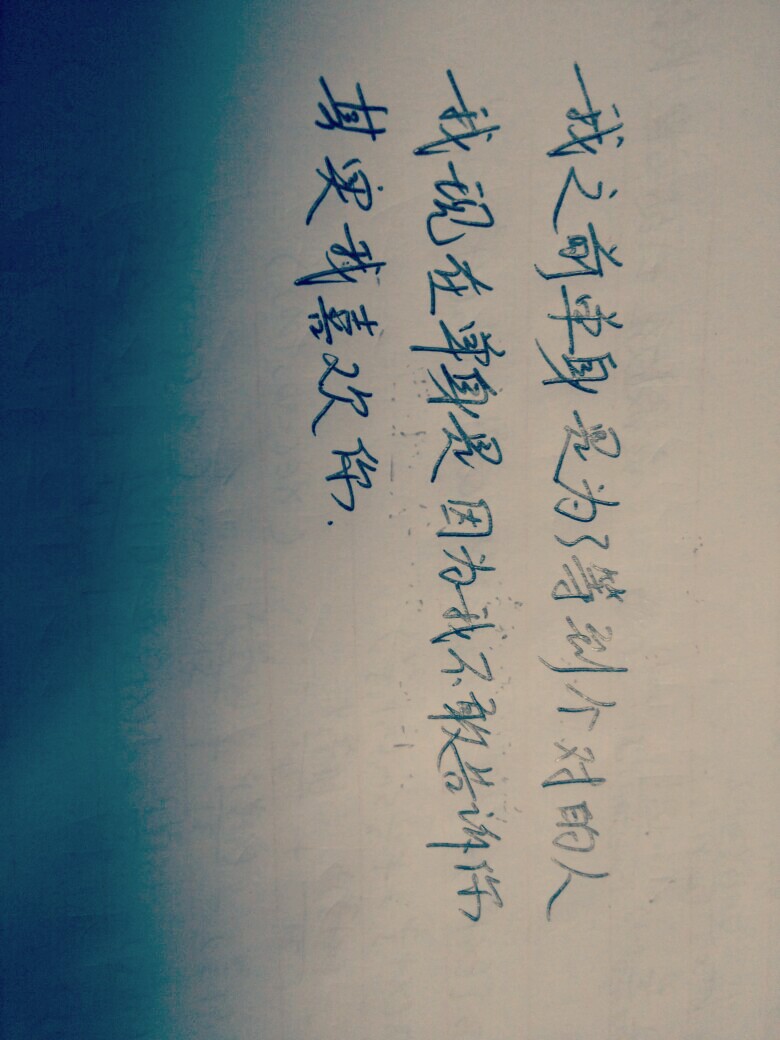 我之前单身是为了等到个对的人
我现在单身是因为我不敢告诉你
其实我喜欢你.